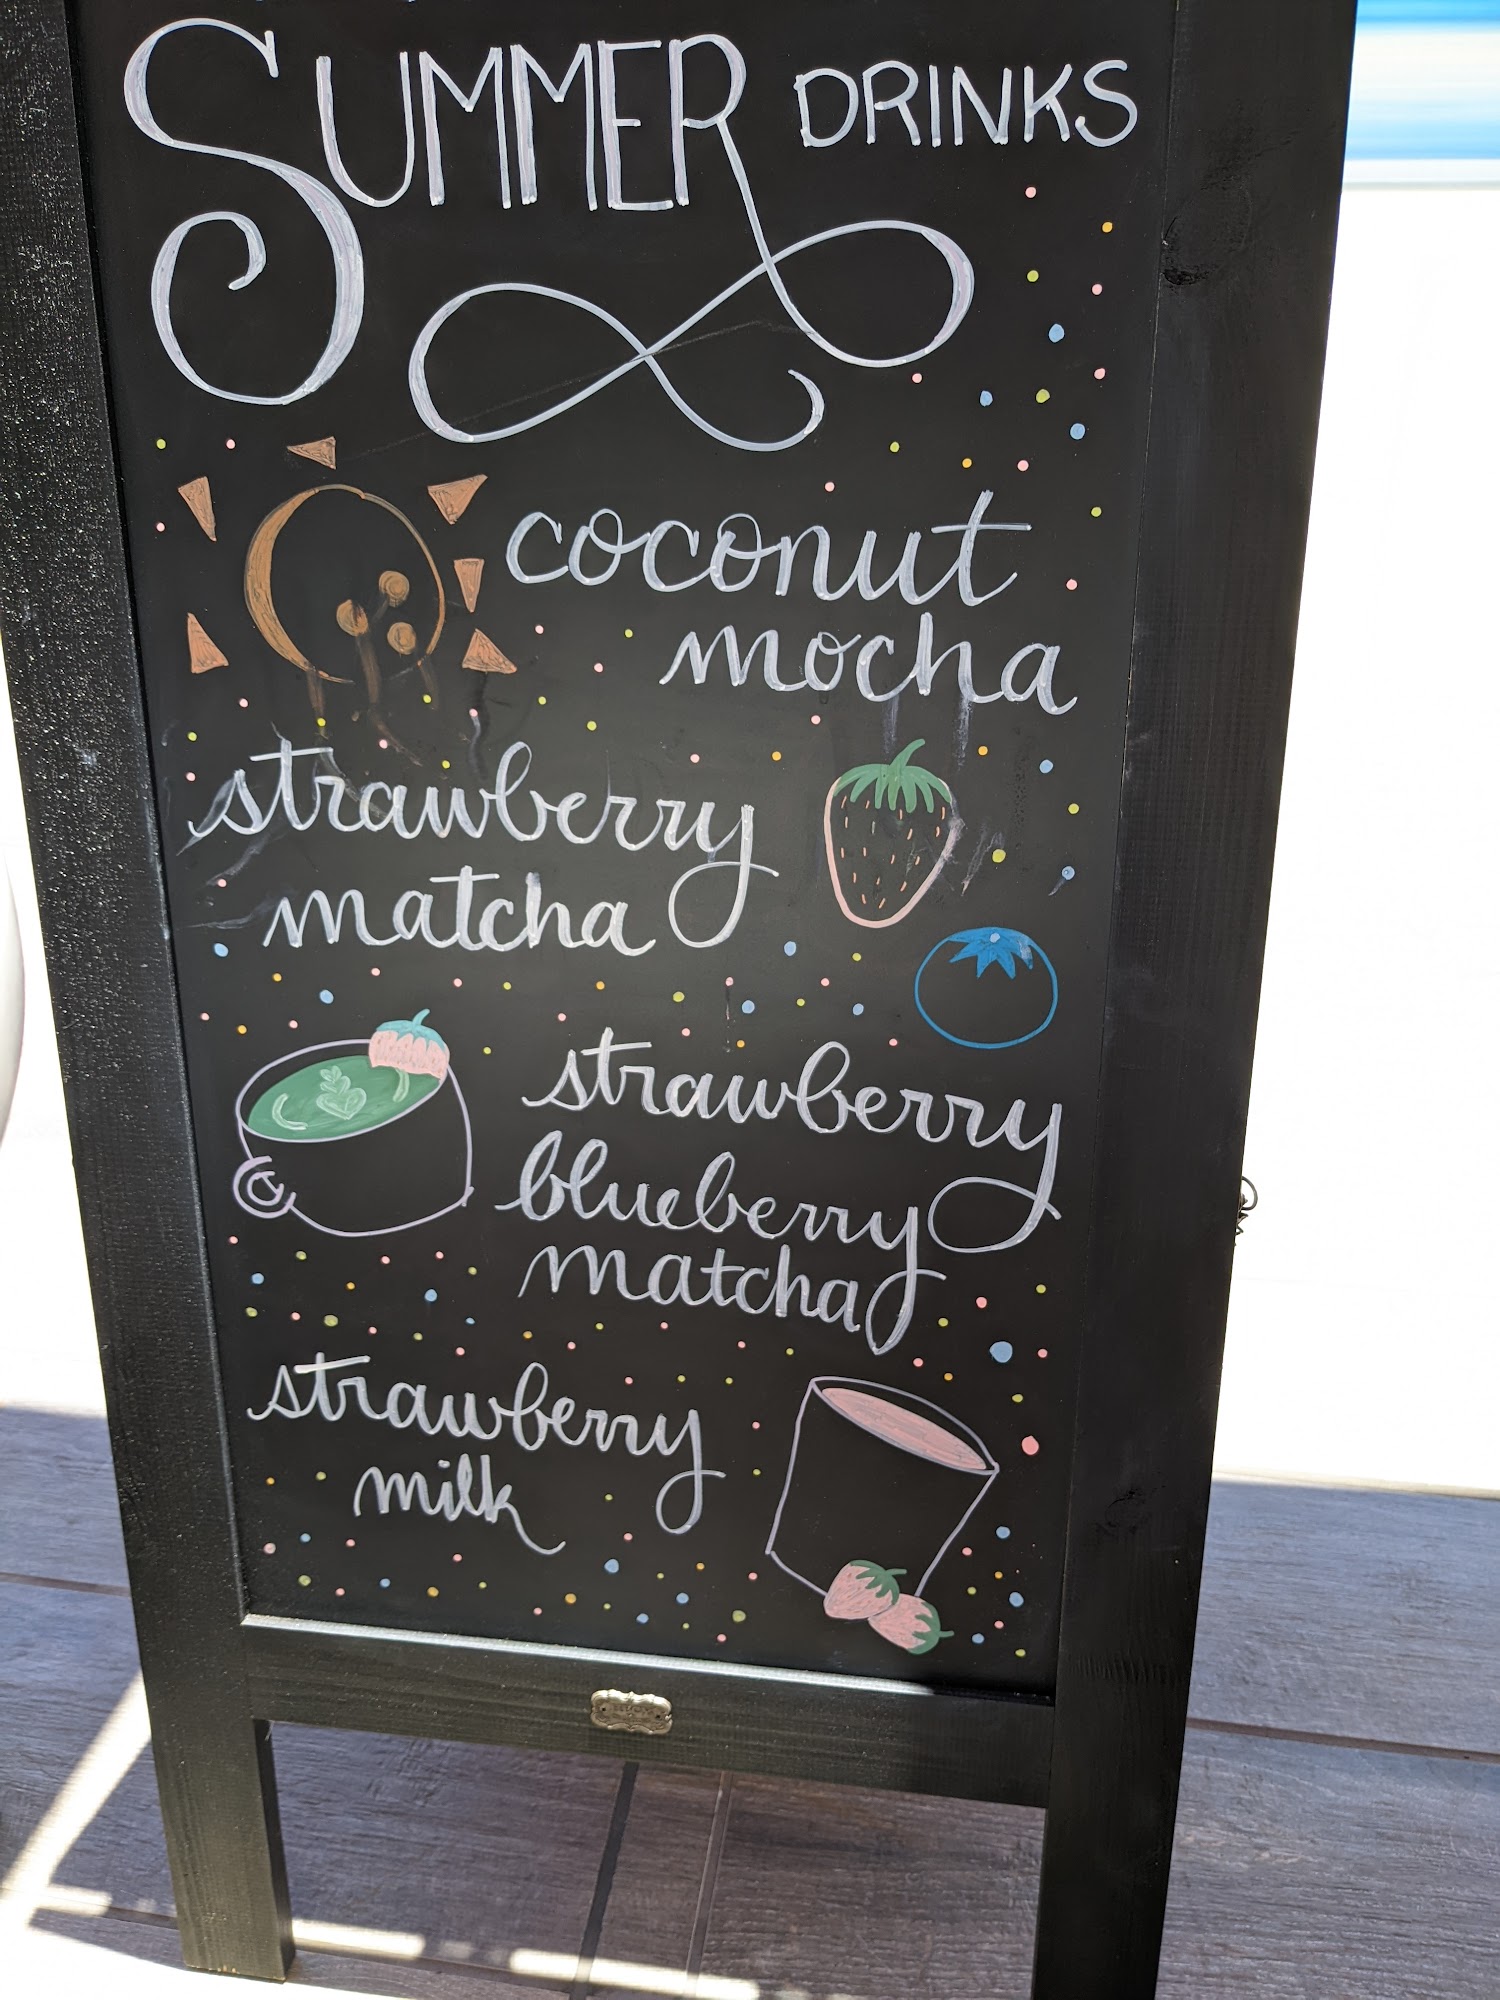 SUMMER DRINKS
coconut
mocha
strawberry
matcha
strawberry
blueberry
matcha
strawberry
milk